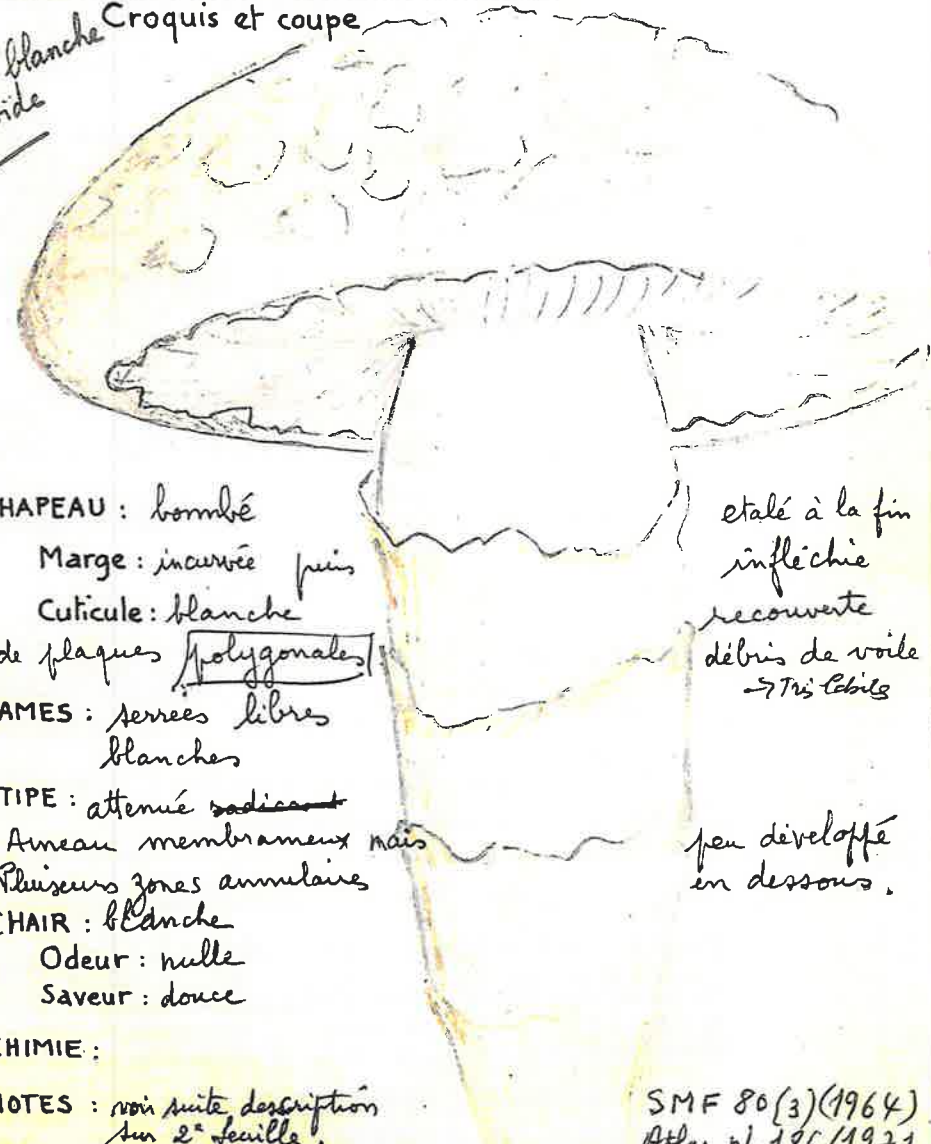 Croquis et coupe
blanche
HAPEAU : bombé etalé à la fin
Marge : incurvée puis infléchie
Cuticule : blanche recouverte
de plaques polygonales débris de voile
→ Très labile
AMES : serrées libres
blanches
TIPE : attenué radicant
Anneau membraneux mais peu développé
Plusieurs zones annulaires en dessous.
CHAIR : blanche
Odeur : nulle
Saveur : douce
CHIMIE :
NOTES : voir suite description
sur 2e feuille.
SMF 80 (3) (1964)
Atlas pl